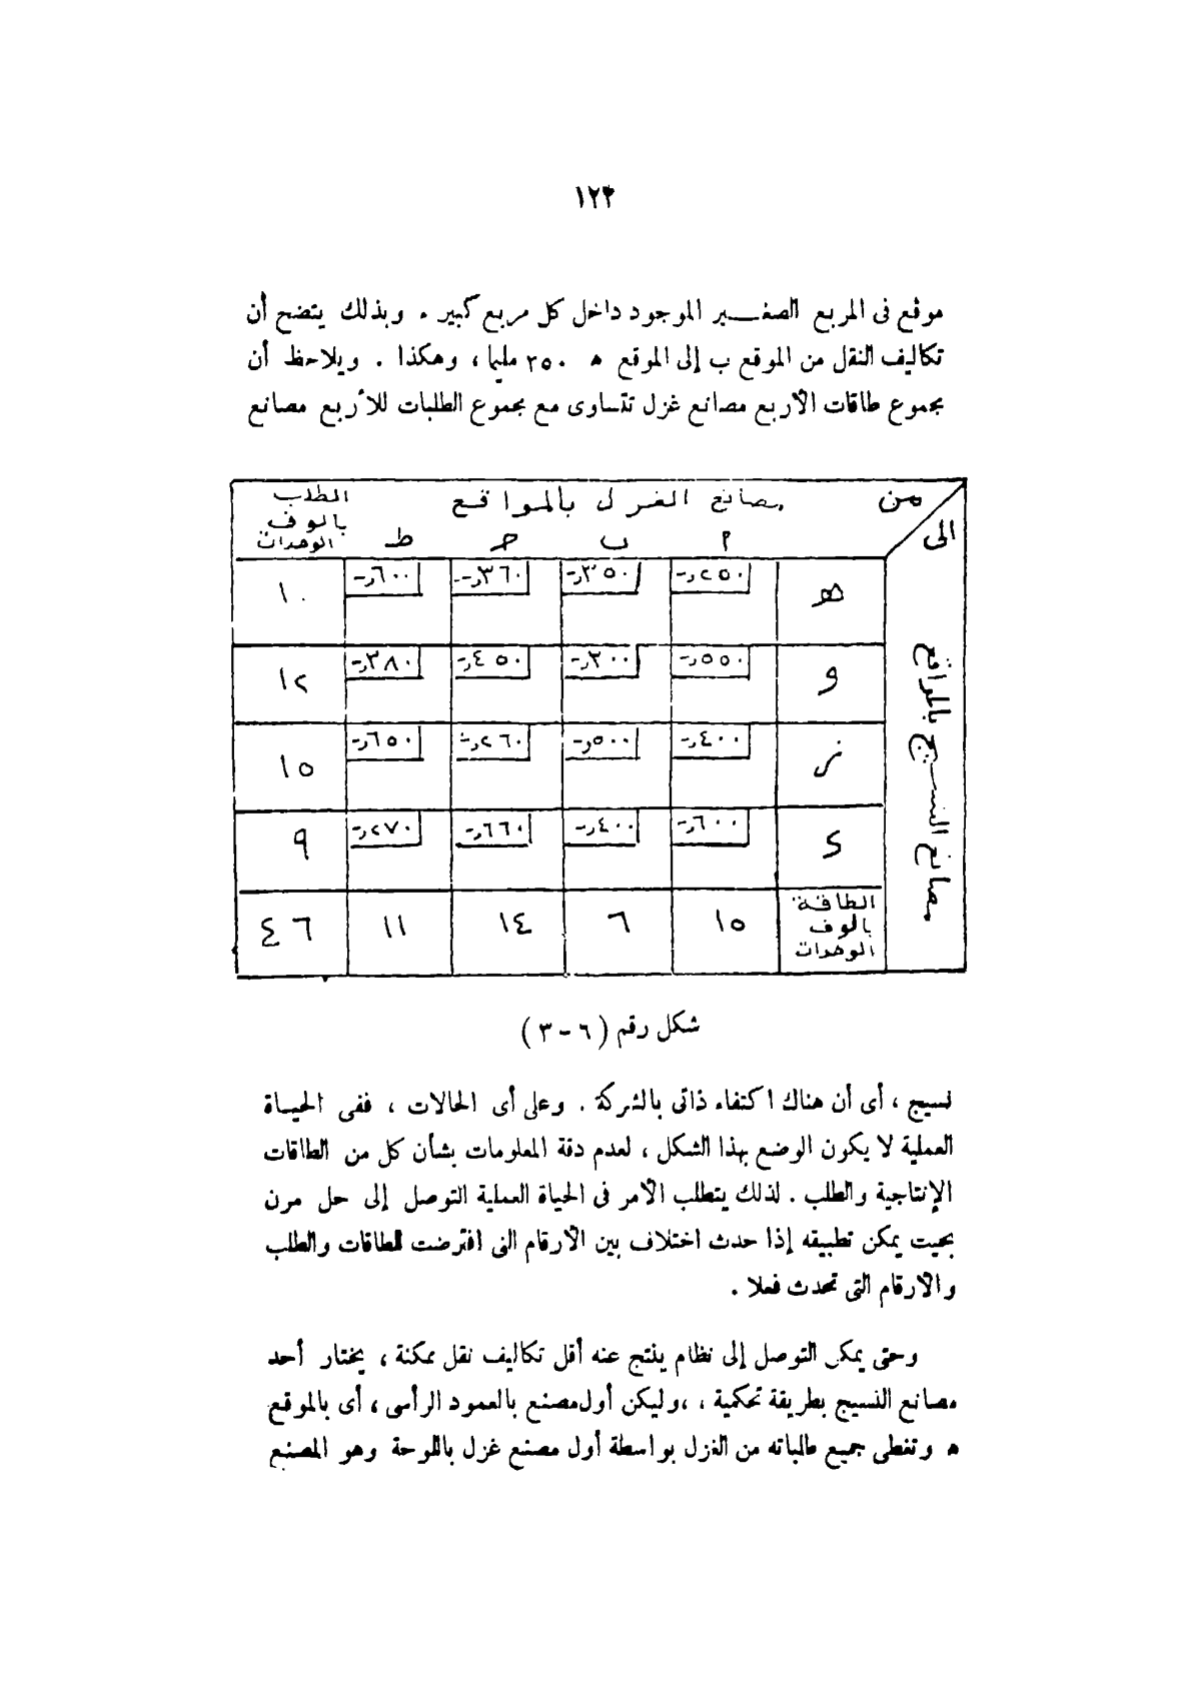 ١٢٣
موقع فى المربع الصغـــير الموجود داخل كل مربع كبير . وبذلك يتضح أن
تكاليف النقل من الموقع ب إلى الموقع ه ٣٥٠ مليما ، وهكذا . ويلاحظ أن
مجموع طاقات الأربع مصانع غزل تتساوى مع مجموع الطلبات للأربع مصانع
من مصانع الغزل بالمواقع الطلب بالوف الوحدات
الى ا ب حـ ط
مصانع النسيج بالمواقع
هـ ٢٥٠ر- ٣٥٠ر- ٣٦٠ر- ٦٠٠ر- ١٠
و ٥٥٠ر- ٣٠٠ر- ٤٥٠ر- ٣٨٠ر- ١٢
ز ٤٠٠ر- ٥٠٠ر- ٢٦٠ر- ٦٥٠ر- ١٥
ى ٦٠٠ر- ٤٠٠ر- ٦٦٠ر- ٢٧٠ر- ٩
الطاقة بالوف الوحدات ١٥ ٦ ١٤ ١١ ٤٦
شكل رقم ( ٦ - ٣ )
نسيج ، أى أن هناك اكتفاء ذاتى بالشركة . وعلى أى الحالات ، ففى الحياة
العملية لا يكون الوضع بهذا الشكل ، لعدم دقة المعلومات بشأن كل من الطاقات
الإنتاجية والطلب . لذلك يتطلب الأمر فى الحياة العملية التوصل إلى حل مرن
بحيث يمكن تطبيقه إذا حدث اختلاف بين الأرقام التى افترضت للطاقات والطلب
والأرقام التى تحدث فعلا .
وحتى يمكن التوصل إلى نظام ينتج عنه أقل تكاليف نقل ممكنة ، يختار أحد
مصانع النسيج بطريقة تحكمية ، ،وليكن أول مصنع بالعمود الرأسى ، أى بالموقع
ه وتغطى جميع طلباته من الغزل بواسطة أول مصنع غزل باللوحة وهو المصنع